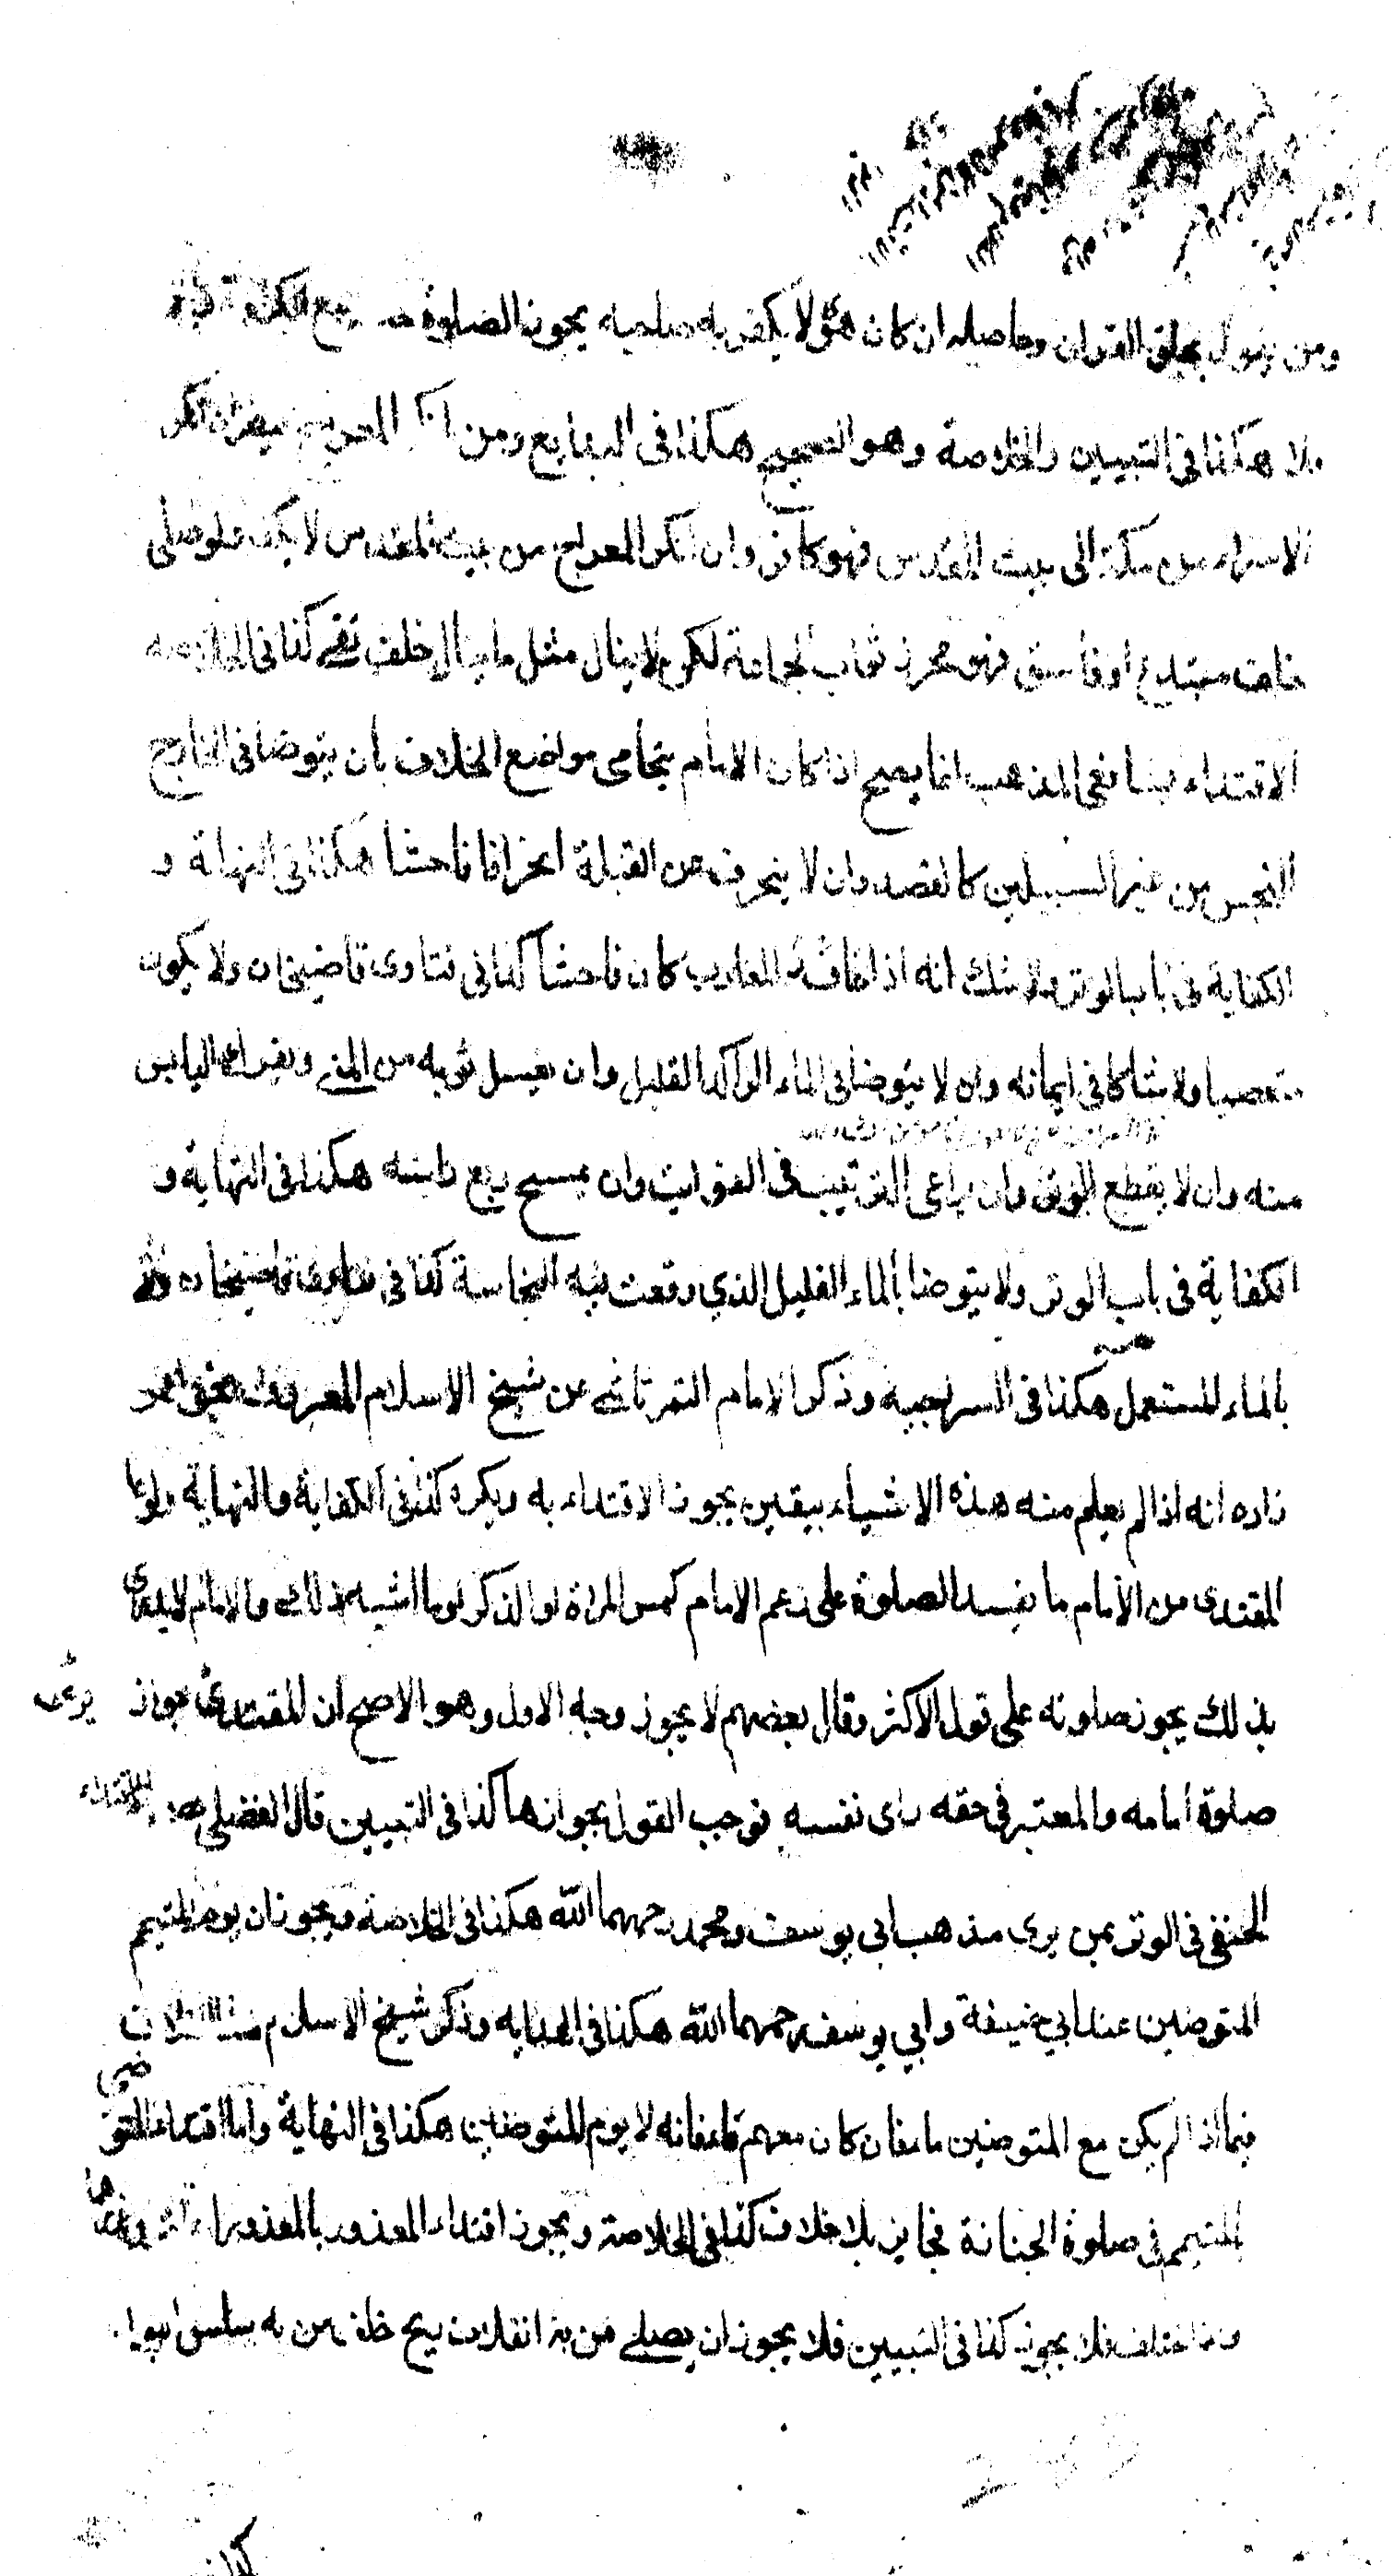 ومن يقول بخلق القران وحاصله ان كان هوى لا يكفر به صاحبه يجوز الصلوة مع الكراهة
فلا هكذا فى التبيين والخلاصة وهو الصحيح هكذا فى البدايع ومن انكر المعراج ينظر ان انكر
الاسراء من مكة الى بيت المقدس فهو كافر وان انكر المعراج من بيت المقدس لا يكفر ولو صلى
خلف مبتدع او فاسق فهو محرز ثواب الجماعة لكن لا ينال مثل ما ينال خلف تقى كذا فى الخلاصه
الاقتداء بشافعى المذهب انما يصح اذا كان الامام يتحامى مواضع الخلاف بان يتوضا فى الخارج
النجس من غير السبيلين كالفصد وان لا ينحرف عن القبلة انحرافا فاحشا هكذا فى النهاية و
الكفاية فى باب الوتر ولا شك انه اذا المغارب كان فاحشا كذا فى فتاوى قاضيخان ولا يكون
متعصبا ولا شاكا فى ايمانه وان لا يتوضا فى الماء الراكد القليل وان يغسل ثوبه من المنى ويفرك اليابس
منه وان لا يقطع الوتر وان يراعى الترتيب فى الفوايت وان يمسح ربع راسه هكذا فى النهاية و
الكفاية فى باب الوتر ولا يتوضا بالماء القليل الذي وقعت فيه النجاسة كذا فى فتاوى قاضيخان ولا
بالماء المستعمل هكذا فى السراجيه وذكر الامام التمرتاشى عن شيخ الاسلام المعروف بخواهر
زاده انه اذا لم يعلم منه هذه الاشياء بيقين يجوز الاقتداء به ويكره كذا فى الكفاية والنهاية ولو
المقتدى من الامام ما يفسد الصلوة على زعم الامام كمس المراة او الذكر او ما اشبه ذلك والامام لا يدرى
بذلك يجوز صلوته على قول الاكثر وقال بعضهم لا يجوز وجه الاول وهو الاصح ان المقتدى يرى جواز
صلوة امامه والمعتبر فى حقه راى نفسه فوجب القول بجوازها كذا فى التبيين قال الفضلى اقتداء
الحنفى فى الوتر بمن يرى مذهب ابى يوسف ومحمد رحمهما الله هكذا فى الخلاصة ويجوز ان يوم المتيمم
المتوضين عند ابي حنيفة وابي يوسف رحمهما الله هكذا فى الهدايه وذكر شيخ الاسلام الخلاف
فيما اذا لم يكن مع المتوضين ماء فان كان معهم ماء فانه لا يوم المتوضين هكذا فى النهاية واما اقتداء المتوضى
المتيمم فى صلوة الجنازة فجايز بلا خلاف كذا فى الخلاصة ويجوز اقتداء المعذور بالمعذور
وان اختلف فلا يجوز كذا فى التبيين فلا يجوز ان يصلى من به انفلات ريح خلف من به سلس البول